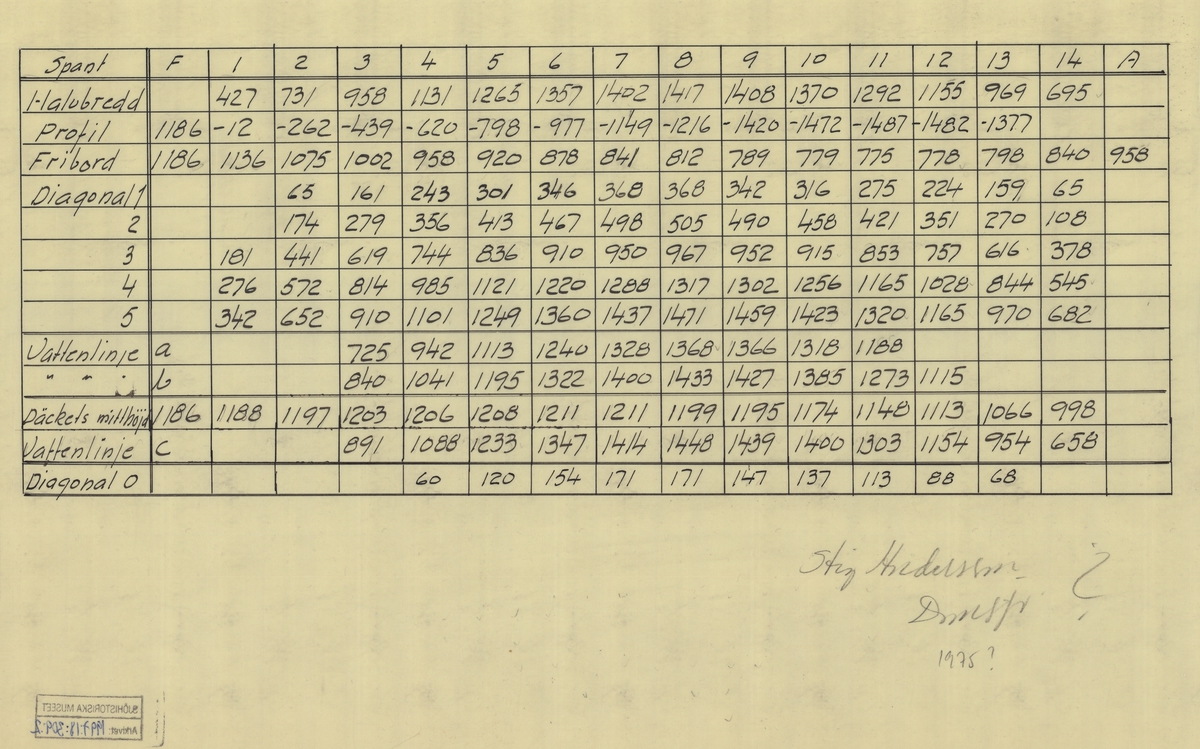 Spant F 1 2 3 4 5 6 7 8 9 10 11 12 13 14 A
Halvbredd 427 731 958 1131 1265 1357 1402 1417 1408 1370 1292 1155 969 695
Profil 1186 -12 -262 -439 -620 -798 -977 -1149 -1216 -1420 -1472 -1487 -1482 -1377
Fribord 1186 1136 1075 1002 958 920 878 841 812 789 779 775 778 798 840 958
Diagonal 1 65 161 243 301 346 368 368 342 316 275 224 159 65
2 174 279 356 413 467 498 505 490 458 421 351 270 108
3 181 441 619 744 836 910 950 967 952 915 853 757 616 378
4 276 572 814 985 1121 1220 1288 1317 1302 1256 1165 1028 844 545
5 342 652 910 1101 1249 1360 1437 1471 1459 1423 1320 1165 970 682
Vattenlinje a 725 942 1113 1240 1328 1368 1366 1318 1188
" " b 840 1041 1195 1322 1400 1433 1427 1385 1273 1115
Däckets mitthöjd 1186 1188 1197 1203 1206 1208 1211 1211 1199 1195 1174 1148 1113 1066 998
Vattenlinje C 891 1088 1233 1347 1414 1448 1439 1400 1303 1154 954 658
Diagonal 0 60 120 154 171 171 147 137 113 88 68
Stig ?
1975?
SJÖHISTORISKA MUSEET
Arkivet: